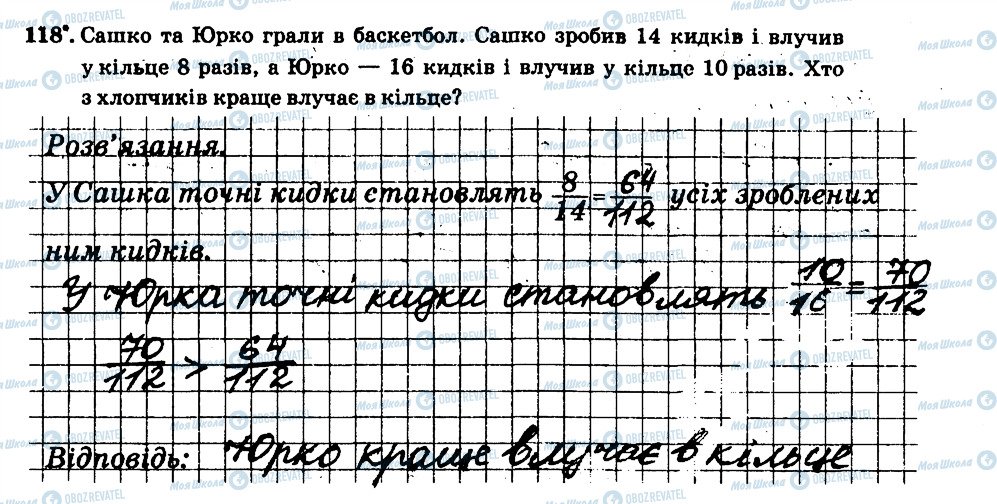 118°. Сашко та Юрко грали в баскетбол. Сашко зробив 14 кидків і влучив
у кільце 8 разів, а Юрко — 16 кидків і влучив у кільце 10 разів. Хто
з хлопчиків краще влучає в кільце?
Розв’язання.
У Сашка точні кидки становлять 8/14 = 64/112 усіх зроблених
ним кидків.
У Юрка точні кидки становлять 10/16 = 70/112
70/112 > 64/112
Відповідь: Юрко краще влучає в кільце